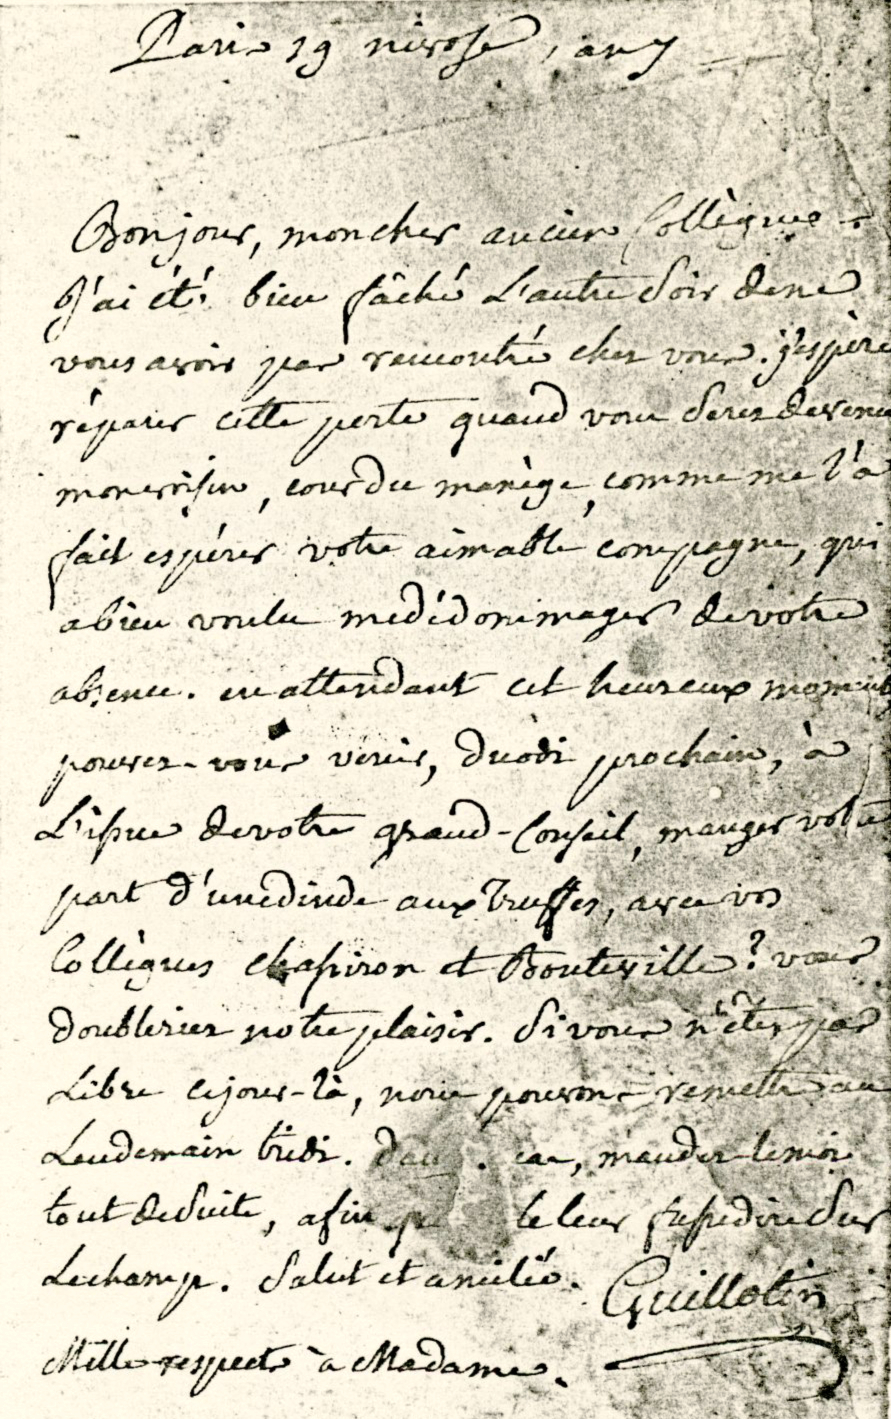 Paris 19 nivose, an 7
Bonjour, mon cher ancien Collègue.
J'ai été bien fâché L'autre Soir de ne
vous avoir pas rencontré chez vous. j'espère
réparer cette perte quand vous Serez devenu
mon voisin, cour du manège, comme me l'a
fait espérer votre aimable compagne, qui
a bien voulu me dédommager de votre
absence. en attendant cet heureux moment,
pouvez-vous venir, duodi prochain, à
L'issue de votre grand-Conseil, manger votre
part d'une dinde aux Truffes, avec vos
Collègues et Bouteville? vous
doubleriez notre plaisir. Si vous n'êtes pas
Libre ce jour-là, nous pouvons remettre au
Lendemain tridi. cas, mandez-le moi
tout de Suite, afin le leur dire Sur
Le champ. Salut et amitié.
Guillotin
Mille respects à Madame.